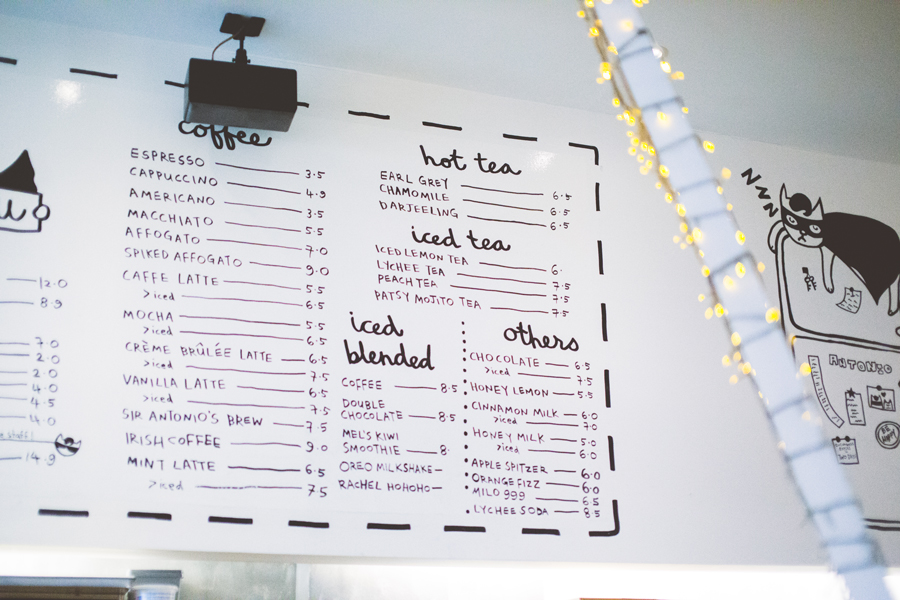 12.0
8.9
7.0
2.0
2.0
4.0
4.5
4.0
stuff!
14.9
coffee
ESPRESSO 3.5
CAPPUCCINO 4.9
AMERICANO 3.5
MACCHIATO 5.5
AFFOGATO 7.0
SPIKED AFFOGATO 9.0
CAFFE LATTE 5.5
>iced 6.5
MOCHA 5.5
>iced 6.5
CRÈME BRÛLÉE LATTE 6.5
>iced 7.5
VANILLA LATTE 6.5
>iced 7.5
SIR ANTONIO'S BREW 7.5
IRISH COFFEE 9.0
MINT LATTE 6.5
>iced 7.5
hot tea
EARL GREY 6.5
CHAMOMILE 6.5
DARJEELING 6.5
iced tea
ICED LEMON TEA 6.
LYCHEE TEA 7.5
PEACH TEA 7.5
PATSY MOTITO TEA 7.5
iced
blended
COFFEE 8.5
DOUBLE
CHOCOLATE 8.5
MEL'S KIWI
SMOOTHIE 8.
OREO MILKSHAKE
RACHEL HOHOHO
others
CHOCOLATE 6.5
>iced 7.5
HONEY LEMON 5.5
CINNAMON MILK 6.0
>iced 7.0
HONEY MILK 5.0
>iced 6.0
APPLE SPITZER 6.0
ORANGE FIZZ 6.0
MILO 999 6.5
LYCHEE SODA 8.5
ZZZZ
ANTONIO